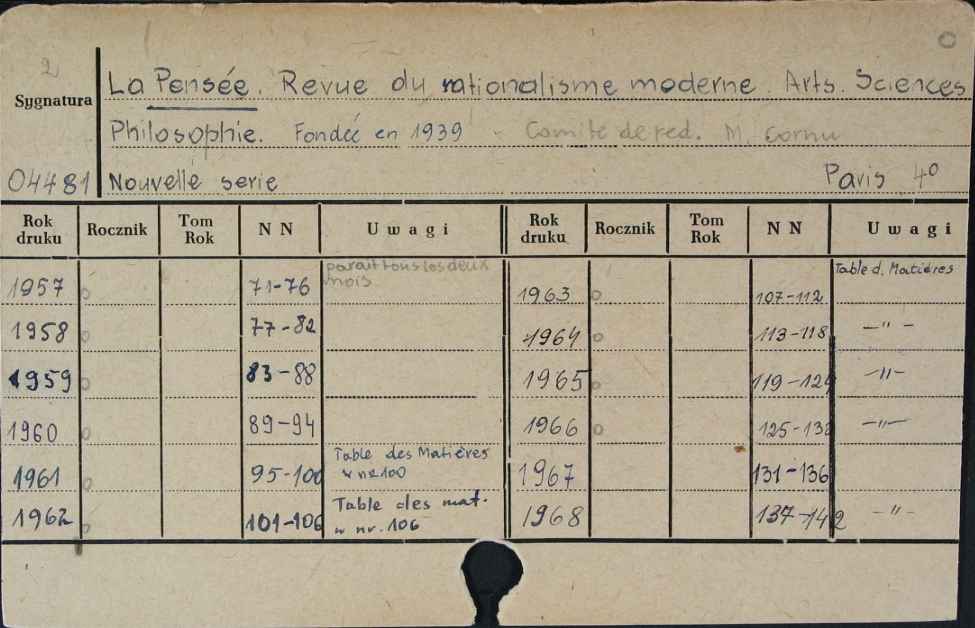 2
Sygnatura
04481
La Pensée. Revue du rationalisme moderne. Arts. Sciences
Philosophie. Fondée en 1939 Comité de red. M. Cornu
Nouvelle serie Paris 4º
Rok druku Rocznik Tom Rok N N Uwagi Rok druku Rocznik Tom Rok N N Uwagi
1957 o 71-76 parait tous les deux mois
1958 o 77-82
1959 o 83-88
1960 o 89-94
1961 o 95-100 Table des Matières w nr 100
1962 o 101-106 Table des mat. w nr. 106
1963 o 107-112 Table d. Matières
1964 o 113-118 -"-
1965 o 119-124 -"-
1966 o 125-132 -"-
1967 131-136
1968 137-142 -"-